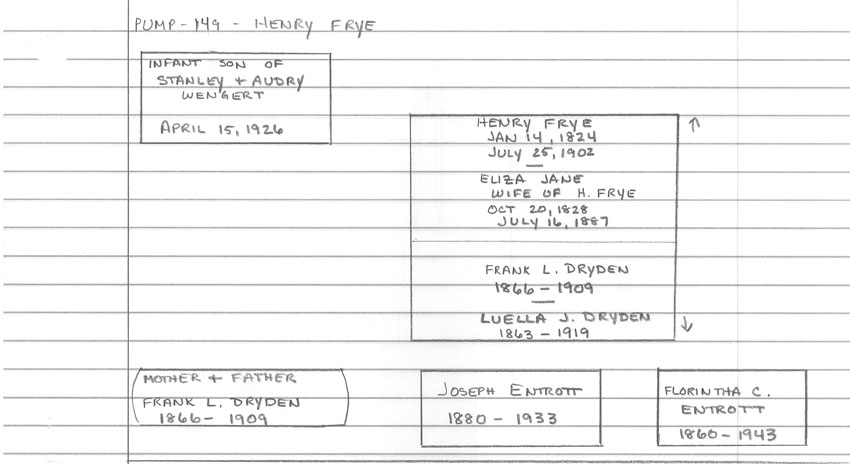 PUMP-149 - HENRY FRYE
INFANT SON OF
STANLEY + AUDRY
WENGERT
APRIL 15, 1926
HENRY FRYE
JAN 14, 1824
JULY 25, 1902
ELIZA JANE
WIFE OF H. FRYE
OCT 20, 1828
JULY 16, 1887
FRANK L. DRYDEN
1866 - 1909
LUELLA J. DRYDEN
1863 - 1919
MOTHER + FATHER
FRANK L. DRYDEN
1866 - 1909
JOSEPH ENTROTT
1880 - 1933
FLORINTHA C.
ENTROTT
1860 - 1943